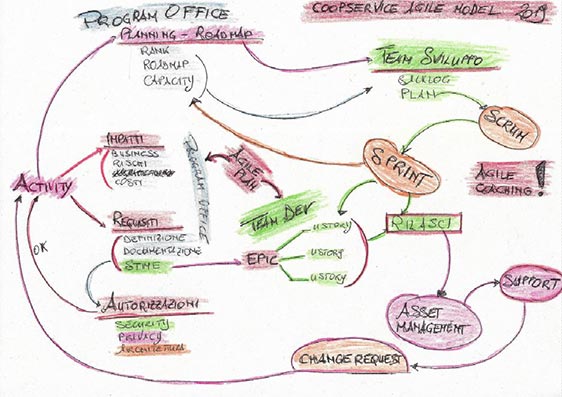 PROGRAM OFFICE
COOPSERVICE AGILE MODEL 2019
PLANNING - ROADMAP
RANK
ROADMAP
CAPACITY
TEAM SVILUPPO
BACKLOG
PLAN
SCRUM
SPRINT
AGILE
COACHING !
IMPATTI
BUSINESS
RISCHI
COSTI
ACTIVITY
PROGRAM OFFICE
AGILE
PLAN
TEAM DEV
REQUISITI
DEFINIZIONE
DOCUMENTAZIONE
STIME
OK
EPIC
USTORY
USTORY
USTORY
RILASCI
AUTORIZZAZIONI
SECURITY
PRIVACY
ARCHITETTURA
ASSET
MANAGEMENT
SUPPORT
CHANGE REQUEST